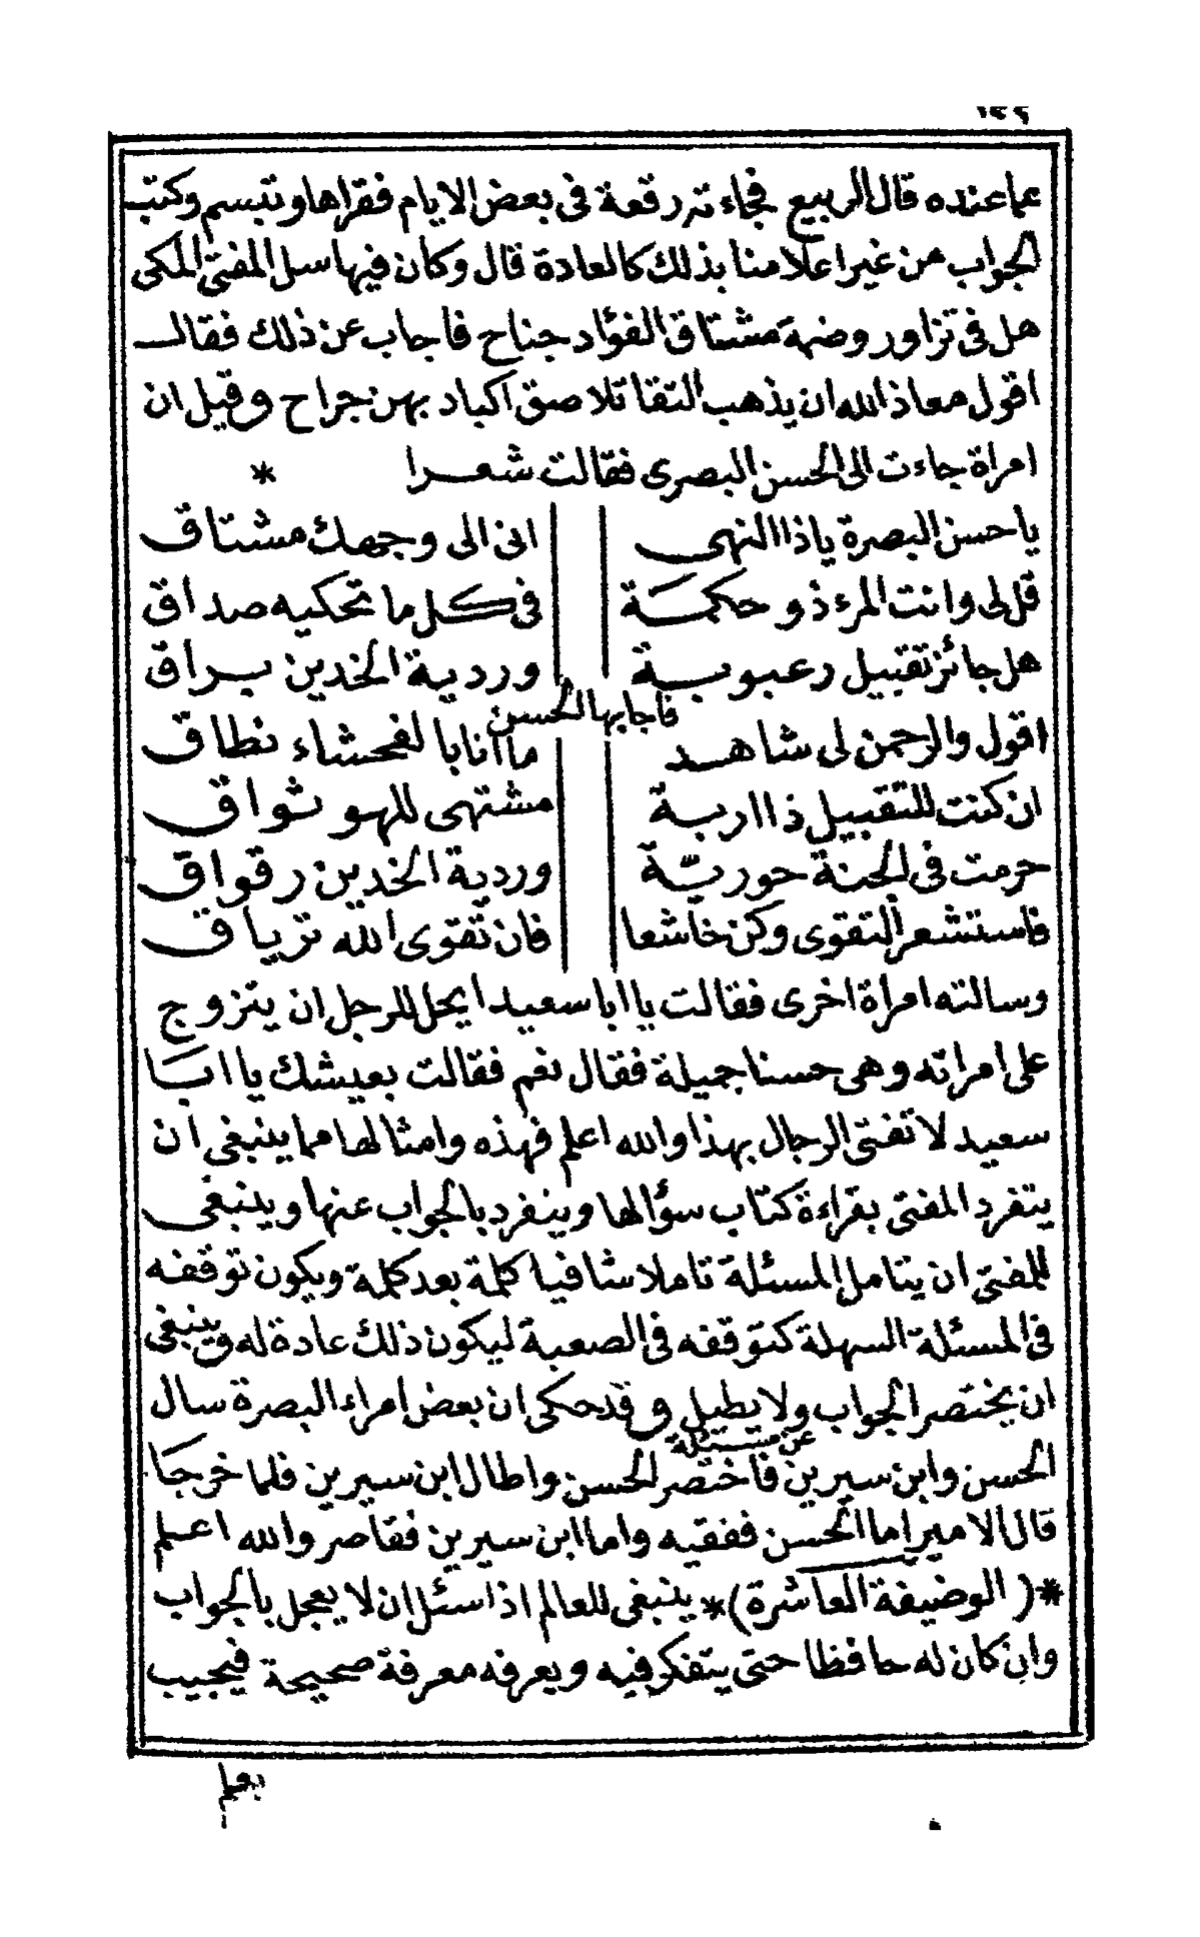 ١٤٢
عما عنده قال الربيع فجاءته رقعة في بعض الايام فقراها وتبسم وكتب
الجواب من غير اعلامنا بذلك كالعادة قال وكان فيها سل المفتى المكى
هل فى تزاور وضمة مشتاق الفؤاد جناح فاجاب عن ذلك فقال
اقول معاذ الله ان يذهب التقا تلاصق اكباد بهن جراح وقيل ان
امراة جاءت الى الحسن البصرى فقالت شعرا *
ياحسن البصرة ياذا النهى انى الى وجهك مشتاق
قل لى وانت المرء ذو حكمة فى كل ما تحكيه صداق
هل جائز تقبيل رعبوبة وردية الخدين براق
فاجابها الحسن
اقول والرحمن لى شاهد ما انا بالفحشاء نطاق
ان كنت للتقبيل ذا اربة مشتهى للهو ثواق
حرمت فى الجنة حوريّة وردية الخدين رقواق
فاستشعر التقوى وكن خاشعا فان تقوى الله ترياق
وسالته امراة اخرى فقالت يا ابا سعيد ايحل للرجل ان يتزوج
على امراته وهى حسنا جميلة فقال نعم فقالت بعيشك يا ابا
سعيد لا تفتى الرجال بهذا والله اعلم فهذه وامثالها مما ينبغى ان
يتفرد المفتى بقراءة كتاب سؤالها وينفرد بالجواب عنها وينبغى
للمفتى ان يتامل المسئلة تاملا شافيا كلمة بعد كلمة ويكون توقفه
فى المسئلة السهلة كتوقفه فى الصعبة ليكون ذلك عادة له وينبغى
ان يختصر الجواب ولا يطيل وقد حكى ان بعض امراء البصرة سال
عن مسئلة
الحسن وابن سيرين فاختصر الحسن واطال ابن سيرين فلما خرجا
قال الامير اما الحسن ففقيه واما ابن سيرين فقاصر والله اعلم
*( الوضيفة العاشرة)* ينبغى للعالم اذا سئل ان لا يعجل بالجواب
وان كان له حافظا حتى يتفكر فيه ويعرفه معرفة صحيحة فيجيب
بعلم